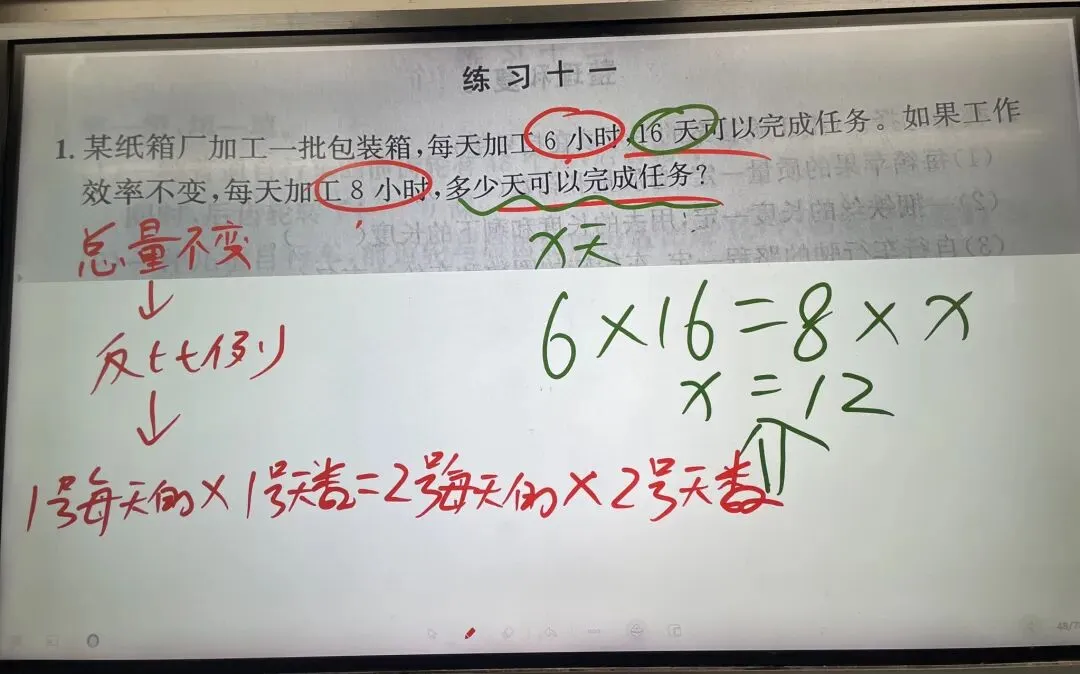 练习十一
1. 某纸箱厂加工一批包装箱,每天加工6小时,16天可以完成任务。如果工作
效率不变,每天加工8小时,多少天可以完成任务?
总量不变
x天
↓
6×16=8×x
反比例
x=12
↓
1号每天的×1号天数=2号每天的×2号天数